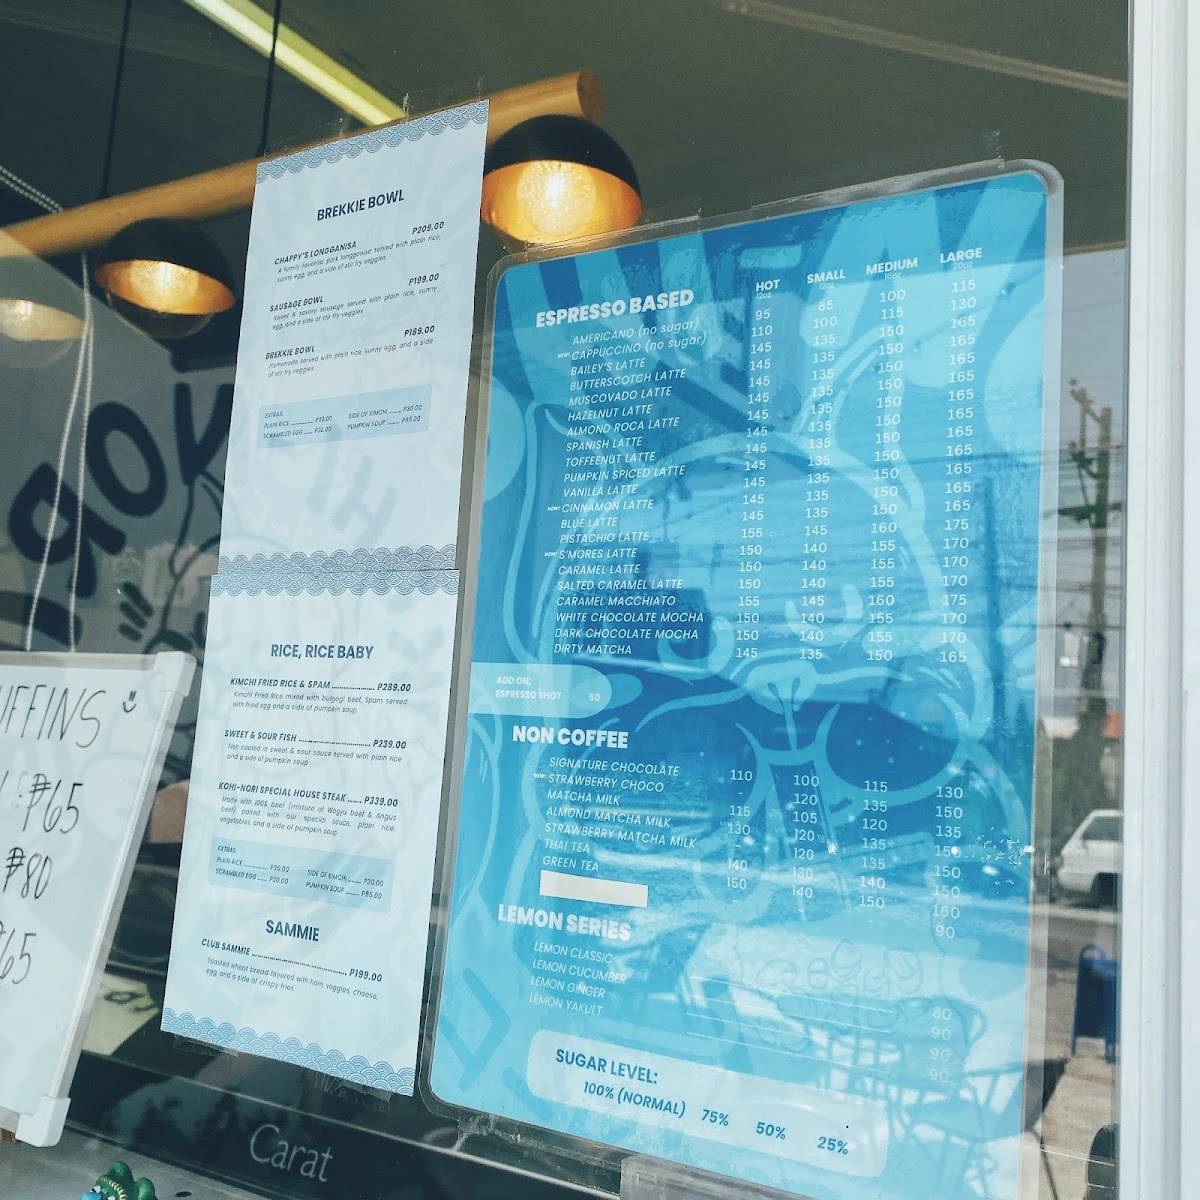 BREKKIE BOWL
P209.00
CHAPPY'S LONGGANISA
A family favorite, pork longganisa served with plain rice,
sunny egg, and a side of stir fry veggies
P199.00
SAUSAGE BOWL
Sweet & savory sausage served with plain rice, sunny
egg, and a side of stir fry veggies
P189.00
BREKKIE BOWL
Hamonado served with plain rice, sunny egg, and a side
of stir fry veggies
EXTRAS:
PLAIN RICE ........ P20.00 SIDE OF KIMCHI ..... P30.00
SCRAMBLED EGG .... P20.00 PUMPKIN SOUP ..... P85.00
RICE, RICE BABY
KIMCHI FRIED RICE & SPAM ................ P289.00
Kimchi Fried Rice mixed with bulgogi beef, Spam served
with fried egg and a side of pumpkin soup
SWEET & SOUR FISH ......................... P239.00
Fish coated in sweet & sour sauce served with plain rice
and a side of pumpkin soup
KOHI-NORI SPECIAL HOUSE STEAK ..... P339.00
Made with 100% beef (mixture of Wagyu beef & Angus
beef) paired with our special sauce, plain rice,
vegetables, and a side of pumpkin soup
EXTRAS:
PLAIN RICE ........ P20.00 SIDE OF KIMCHI ..... P30.00
SCRAMBLED EGG .... P20.00 PUMPKIN SOUP ..... P85.00
SAMMIE
CLUB SAMMIE ................................ P199.00
Toasted wheat bread layered with ham, veggies, cheese,
egg, and a side of crispy fries
ESPRESSO BASED HOT SMALL MEDIUM LARGE
12oz 12oz 16oz 20oz
AMERICANO (no sugar) 95 85 100 115
NEW! CAPPUCCINO (no sugar) 110 100 115 130
BAILEY'S LATTE 145 135 150 165
BUTTERSCOTCH LATTE 145 135 150 165
MUSCOVADO LATTE 145 135 150 165
HAZELNUT LATTE 145 135 150 165
ALMOND ROCA LATTE 145 135 150 165
SPANISH LATTE 145 135 150 165
TOFFEENUT LATTE 145 135 150 165
PUMPKIN SPICED LATTE 145 135 150 165
VANILLA LATTE 145 135 150 165
NEW! CINNAMON LATTE 145 135 150 165
BLUE LATTE 145 135 150 165
PISTACHIO LATTE 155 145 160 175
NEW! S'MORES LATTE 150 140 155 170
CARAMEL LATTE 150 140 155 170
SALTED CARAMEL LATTE 150 140 155 170
CARAMEL MACCHIATO 155 145 160 175
WHITE CHOCOLATE MOCHA 150 140 155 170
DARK CHOCOLATE MOCHA 150 140 155 170
DIRTY MATCHA 145 135 150 165
ADD ON:
ESPRESSO SHOT 50
NON COFFEE
SIGNATURE CHOCOLATE 110 100 115 130
NEW! STRAWBERRY CHOCO - 120 135 150
MATCHA MILK 115 105 120 135
ALMOND MATCHA MILK 130 120 135 150
STRAWBERRY MATCHA MILK - 120 135 150
THAI TEA 140 130 140 150
GREEN TEA 150 140 150 160
90
LEMON SERIES
LEMON CLASSIC 80
LEMON CUCUMBER 90
LEMON GINGER 90
LEMON YAKULT 90
SUGAR LEVEL:
100% (NORMAL) 75% 50% 25%
UFFINS
₱65
₱80
65
Carat